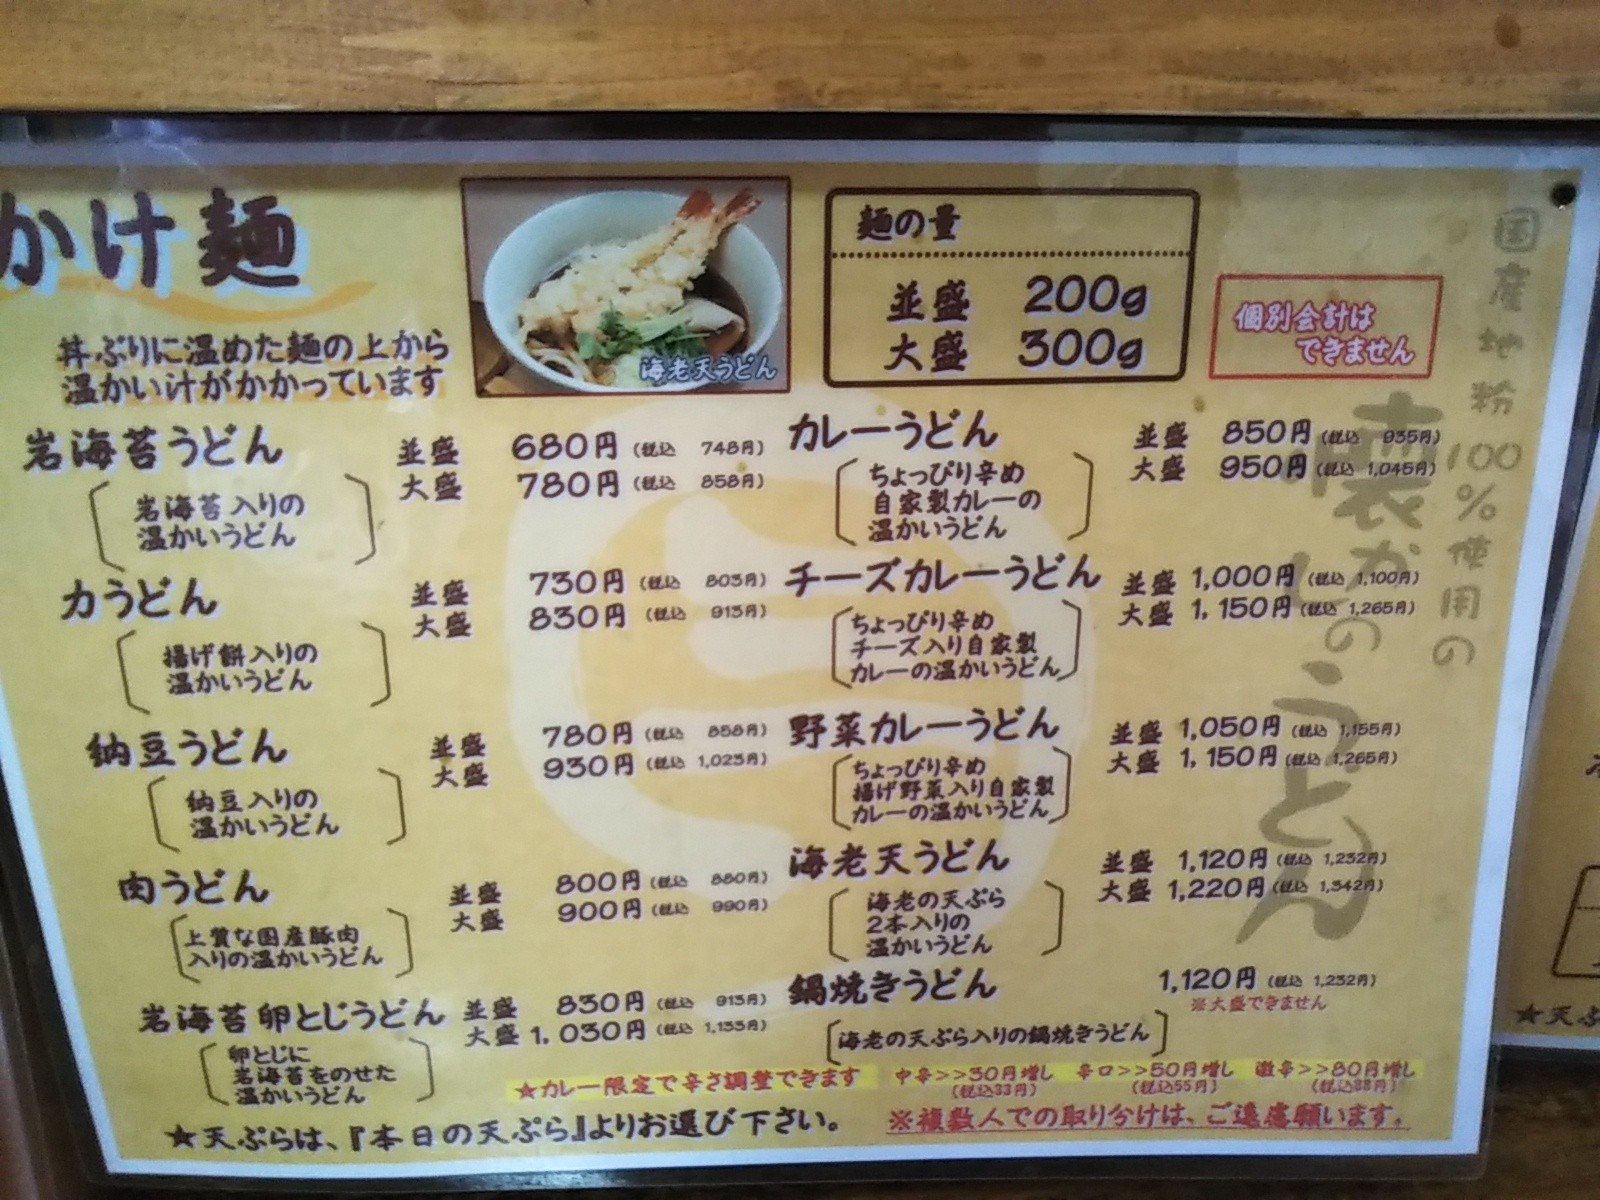 かけ麺
丼ぶりに温めた麺の上から
温かい汁がかかっています
海老天うどん
麺の量
並盛 200g
大盛 300g
個別会計は
できません
国産地粉100%使用の
懐かしのうどん
岩海苔うどん 並盛 680円(税込 748円)
大盛 780円(税込 858円)
岩海苔入りの
温かいうどん
力うどん 並盛 730円(税込 803円)
大盛 830円(税込 913円)
揚げ餅入りの
温かいうどん
納豆うどん 並盛 780円(税込 858円)
大盛 930円(税込 1,023円)
納豆入りの
温かいうどん
肉うどん 並盛 800円(税込 880円)
大盛 900円(税込 990円)
上質な国産豚肉
入りの温かいうどん
岩海苔卵とじうどん 並盛 830円(税込 913円)
大盛 1,030円(税込 1,133円)
卵とじに
岩海苔をのせた
温かいうどん
カレーうどん 並盛 850円(税込 935円)
大盛 950円(税込 1,045円)
ちょっぴり辛め
自家製カレーの
温かいうどん
チーズカレーうどん 並盛 1,000円(税込 1,100円)
大盛 1,150円(税込 1,265円)
ちょっぴり辛め
チーズ入り自家製
カレーの温かいうどん
野菜カレーうどん 並盛 1,050円(税込 1,155円)
大盛 1,150円(税込 1,265円)
ちょっぴり辛め
揚げ野菜入り自家製
カレーの温かいうどん
海老天うどん 並盛 1,120円(税込 1,232円)
大盛 1,220円(税込 1,342円)
海老の天ぷら
2本入りの
温かいうどん
鍋焼きうどん 1,120円(税込 1,232円)
※大盛できません
海老の天ぷら入りの鍋焼きうどん
★カレー限定で辛さ調整できます 中辛>>30円増し 辛口>>50円増し 激辛>>80円増し
(税込33円) (税込55円) (税込88円)
★天ぷらは、『本日の天ぷら』よりお選び下さい。 ※複数人での取り分けは、ご遠慮願います。
★天ぷ